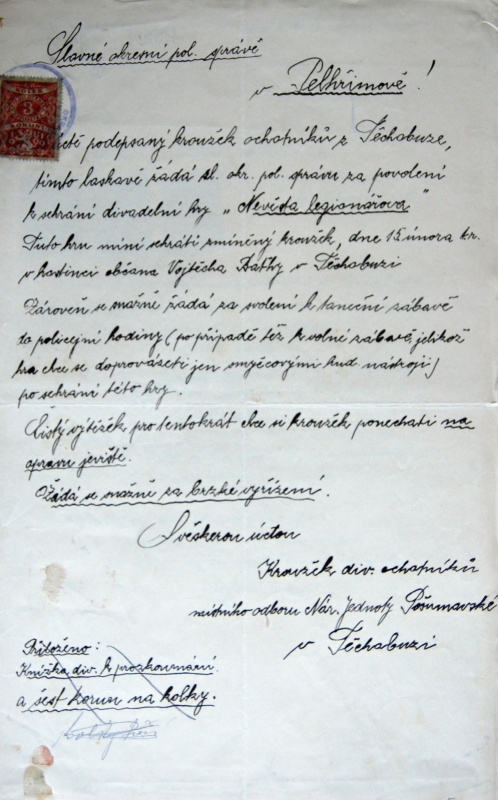 Slavné okresní pol. správě
v Pelhřimově!
KOLEK
3
KORUNY
podepsaný kroužek ochotníků z Těchobuze,
tímto laskavě žádá sl. okr. pol. správu za povolení
k sehrání divadelní hry „Nevěsta legionářova"
Tuto hru míní sehráti zmíněný kroužek, dne 15 února t.r.
v hostinci občana Vojtěcha v Těchobuzi
Zároveň se snažně žádá za svolení k taneční zábavě
do policejní hodiny (po případě též k volné zábavě jelikož
hra chce se doprovázeti jen smyčcovými hud nástroji)
po sehrání této hry.
Čistý výtěžek pro tentokrát chce si kroužek ponechati na
opravu jeviště.
Žádá se snažně za brzké vyřízení.
S veškerou úctou
Kroužek div. ochotníků
místního odboru Nár. Jednoty Pošumavské
v Těchobuzi
Přiloženo:
Knížka div. k prozkoumání
a šest korun na kolky.